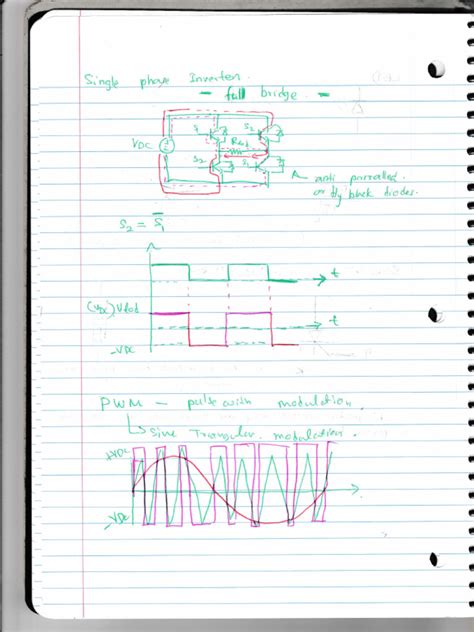 Single phase Inverter.
- full bridge. -
S1
S2
VDC
S2
S1
anti parralled
or fly back diodes.
S2 = S̅1
t
(VDC)
t
-VDC
PWM - pulse with modulation
Sine Triangular modulation.
+VDC
-VDC